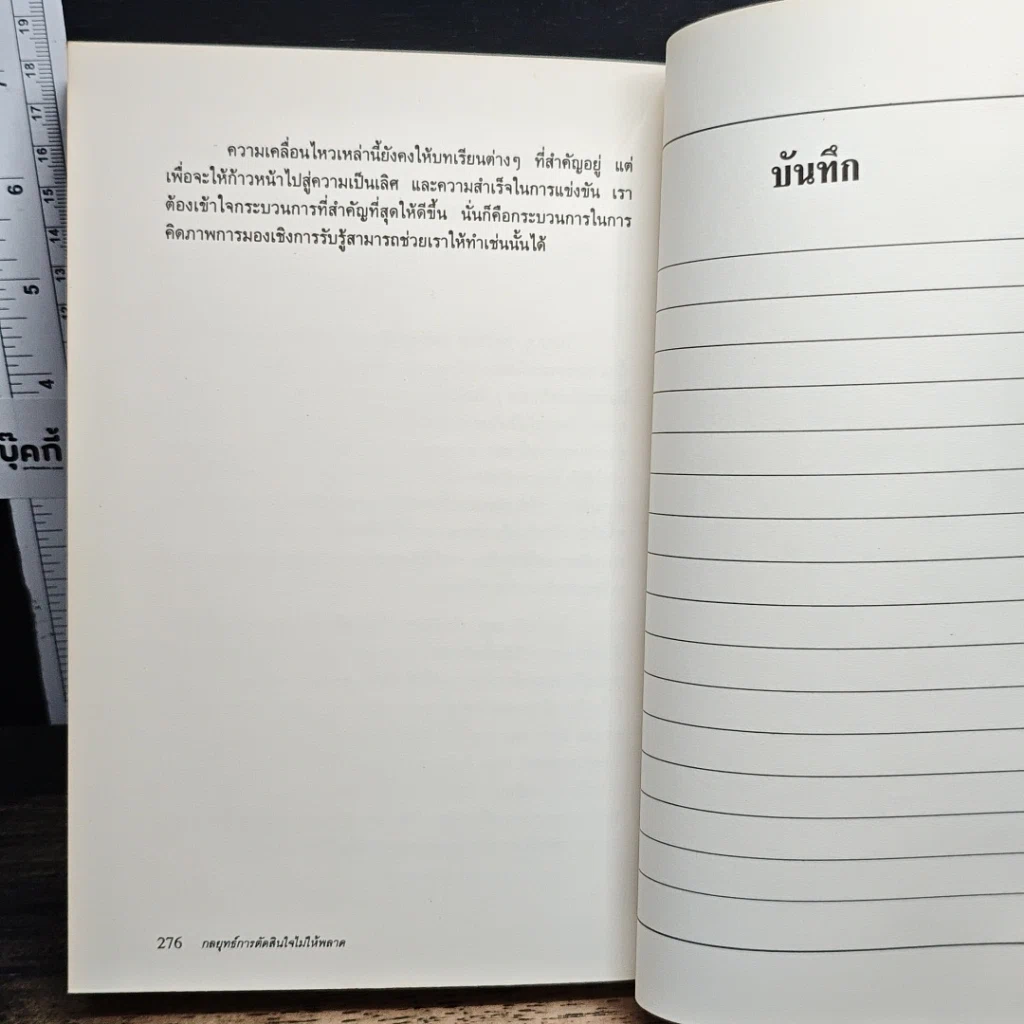 ความเคลื่อนไหวเหล่านี้ยังคงให้บทเรียนต่างๆ ที่สำคัญอยู่ แต่
เพื่อจะให้ก้าวหน้าไปสู่ความเป็นเลิศ และความสำเร็จในการแข่งขัน เรา
ต้องเข้าใจกระบวนการที่สำคัญที่สุดให้ดีขึ้น นั่นก็คือกระบวนการในการ
คิดภาพการมองเชิงการรับรู้สามารถช่วยเราให้ทำเช่นนั้นได้
276 กลยุทธ์การตัดสินใจไม่ให้พลาด
บันทึก
19
18
17
16
15
14
13
12
6
5
4
บุ๊คกี้